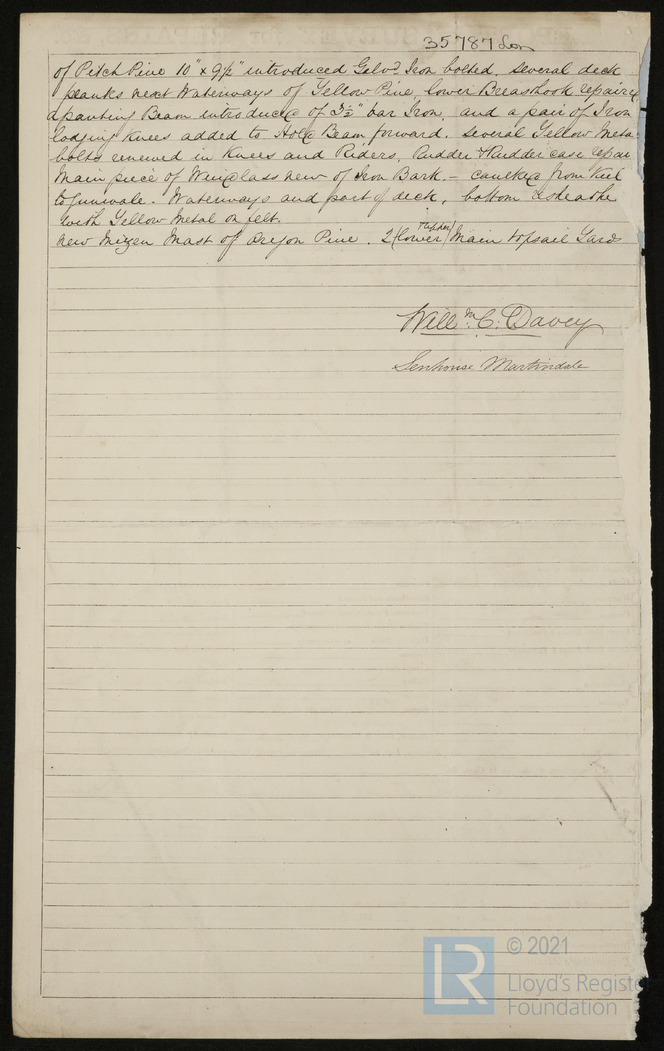 35787 Lon
of Pitch Pine 10" x 9½" introduced Galvd Iron bolted. Several deck
planks next Waterways of Yellow Pine, lower Breasthook repaired
a panting Beam introduced of 3½" bar Iron, and a pair of Iron
lodging Knees added to Hold Beam forward. Several Yellow Meta
bolts renewed in Knees and Riders, Rudder & Rudder case repai
Main piece of Windlass new of Iron Bark – caulked from Keel
to gunwale. Waterways and part of deck, bottom resheathe
with Yellow Metal on felt.
New Mizen Mast of Oregon Pine. 2 (lower & upper) Main topsail Yards
Willm. C. Davey
Senhouse Martindale
LR
© 2021
Lloyd's Registe
Foundation